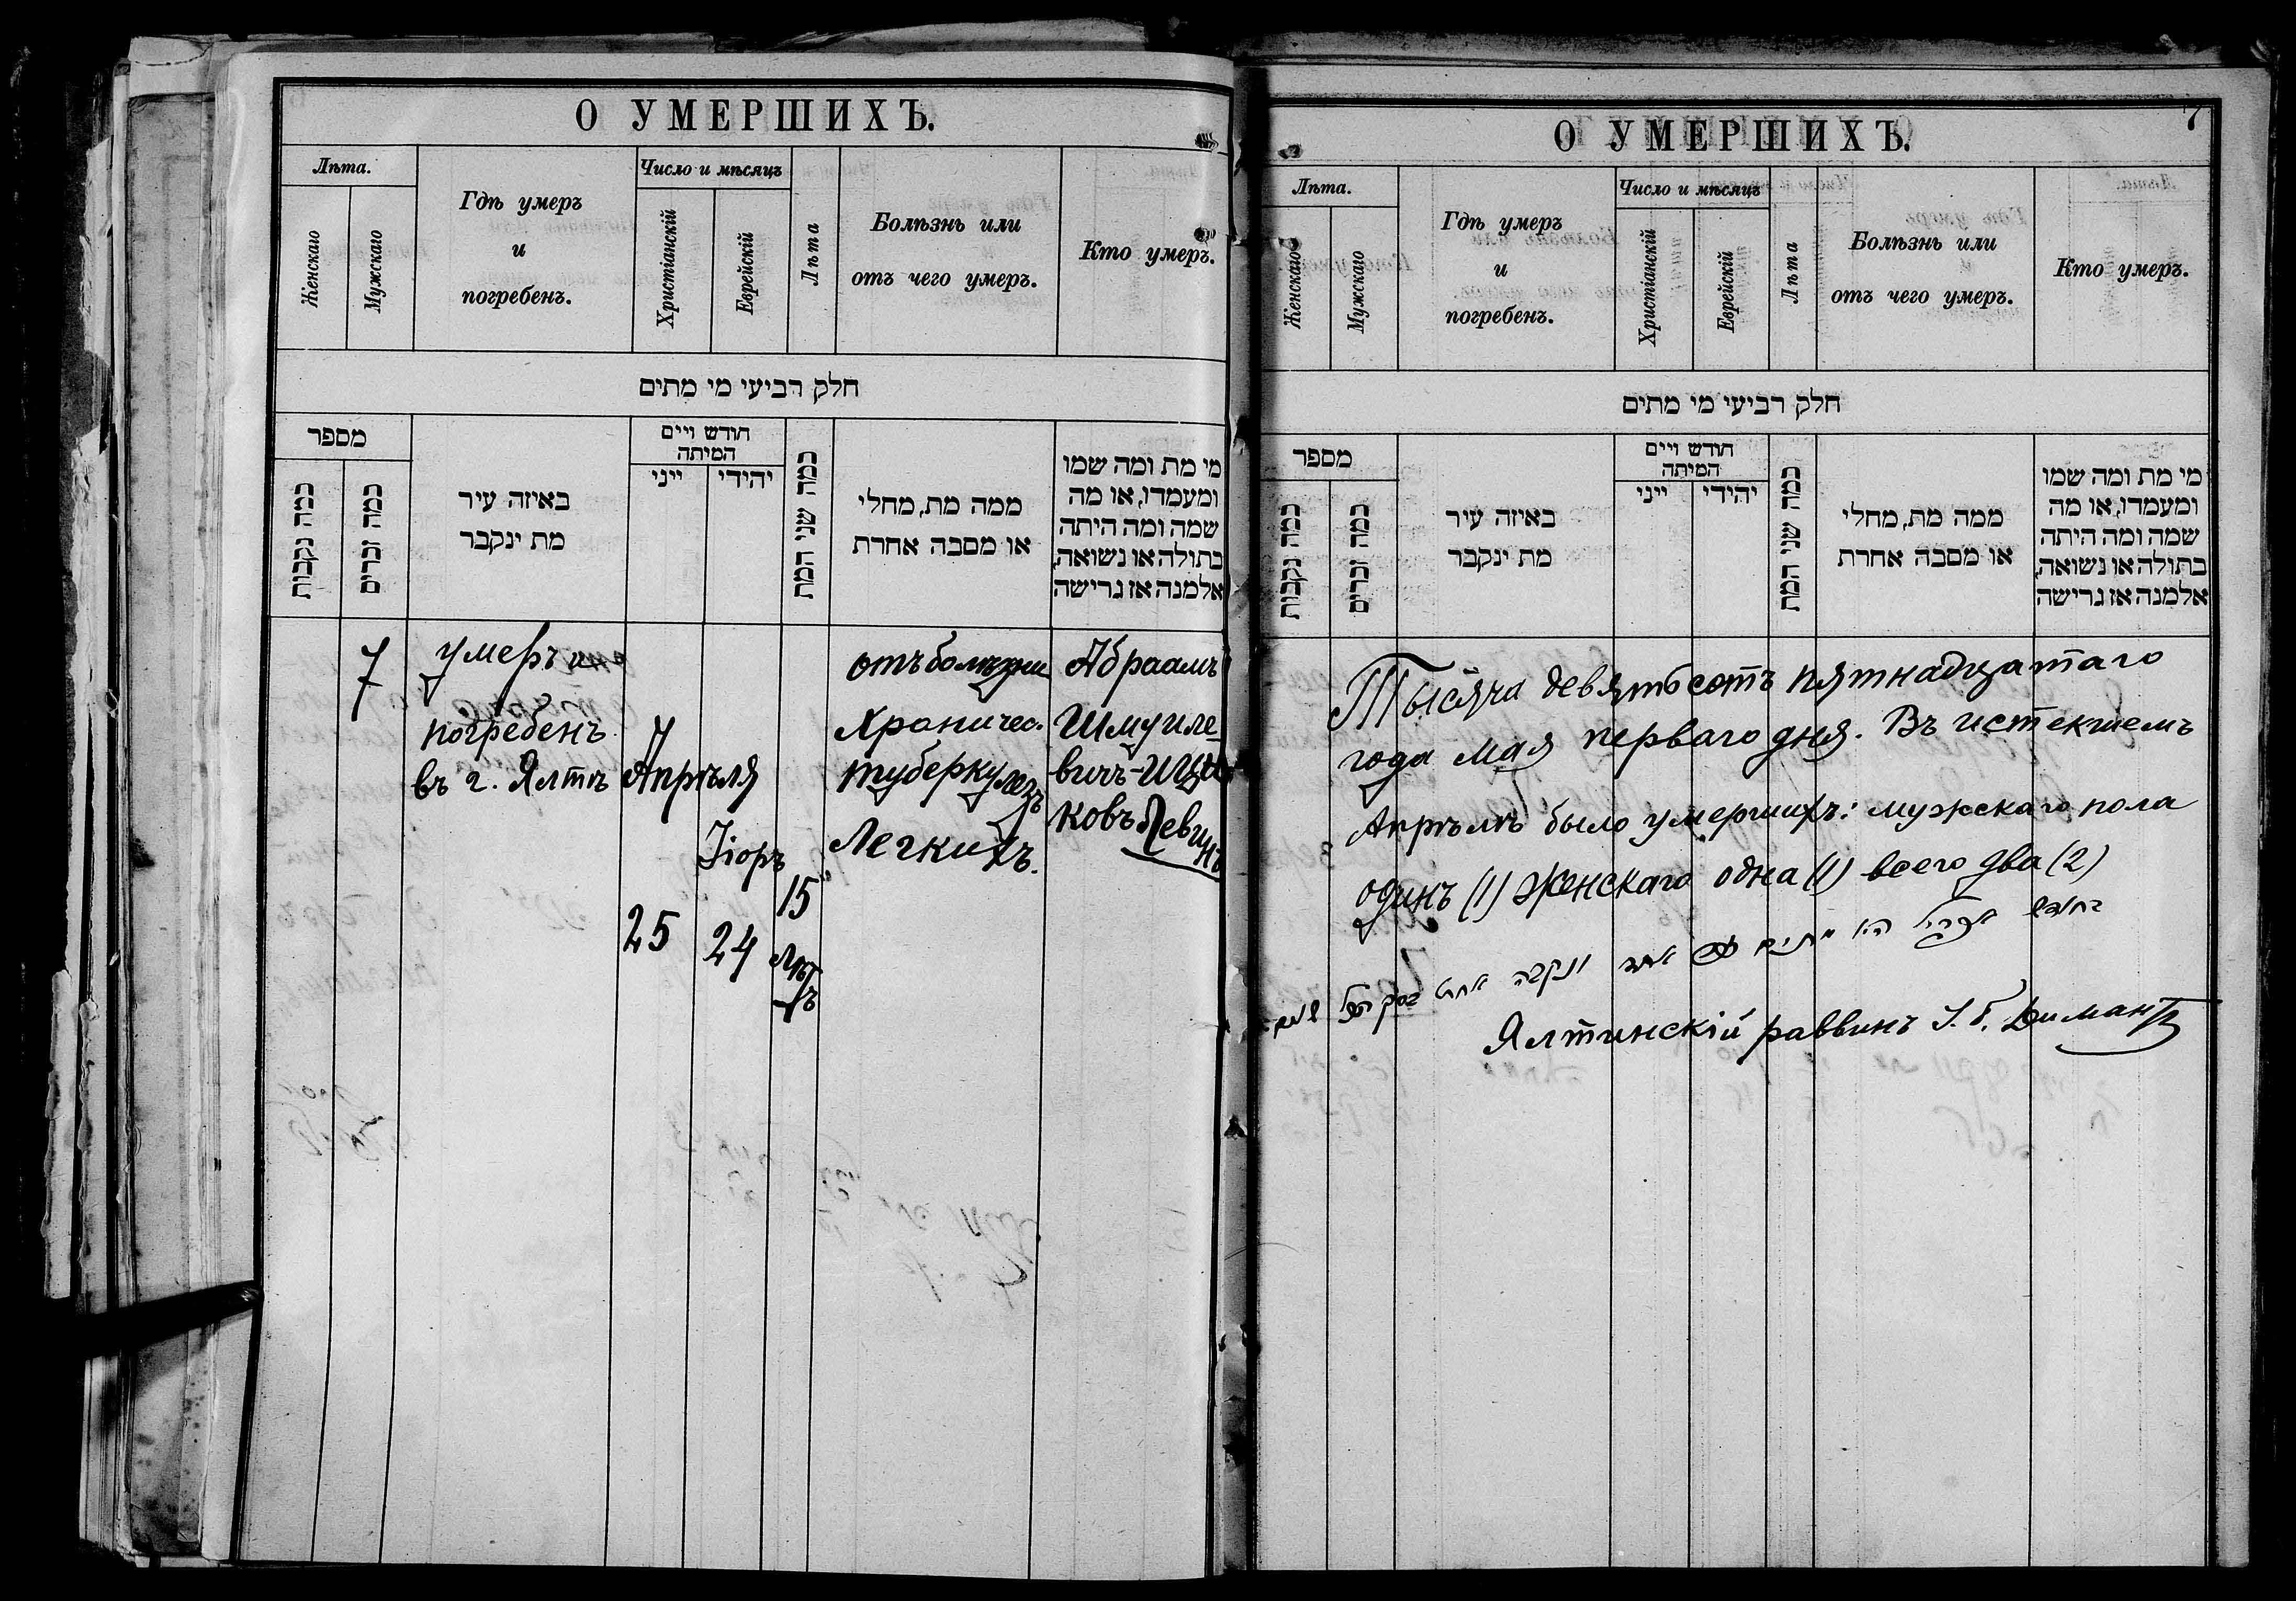 О УМЕРШИХЪ.
Лѣта.
Женскаго
Мужскаго
Гдѣ умеръ
и
погребенъ.
Число и мѣсяцъ
Христіанскій
Еврейскій
Лѣта
Болѣзнь или
отъ чего умеръ.
Кто умеръ.
חלק רביעי מי מתים
מספר
כמה נקבות
כמה זכרים
באיזה עיר
מת ינקבר
חודש ויים
המיתה
ייני
יהידי
כמה שני המת
ממה מת, מחלי
או מסבה אחרת
מי מת ומה שמו
ומעמדו, או מה
שמה ומה היתה
בתולה או נשואה,
אלמנה אז גרישה
7
умеръ и
погребенъ
въ г. Ялтѣ
7
Апрѣля
25
Іюръ
24
15
лѣтъ
отъ болѣзни
Хроничес.
туберкулезъ
Легкихъ.
Абраамъ
Шмуиле-
вичъ-Ицко
ковъ Левинъ
О УМЕРШИХЪ.
7
Лѣта.
Женскаго
Мужскаго
Гдѣ умеръ
и
погребенъ.
Число и мѣсяцъ
Христіанскій
Еврейскій
Лѣта
Болѣзнь или
отъ чего умеръ.
Кто умеръ.
חלק רביעי מי מתים
מספר
כמה נקבות
כמה זכרים
באיזה עיר
מת ינקבר
חודש ויים
המיתה
ייני
יהידי
כמה שני המת
ממה מת, מחלי
או מסבה אחרת
מי מת ומה שמו
ומעמדו, או מה
שמה ומה היתה
בתולה או נשואה,
אלמנה אז גרישה
Тысяча девятьсотъ пятнадцатаго
года мая перваго дня. Въ истекшемъ
Апрѣлѣ было умершихъ: мужскаго пола
одинъ (1) женскаго одна (1) всего два (2)
Ялтинскій раввинъ І. Б. Диманть